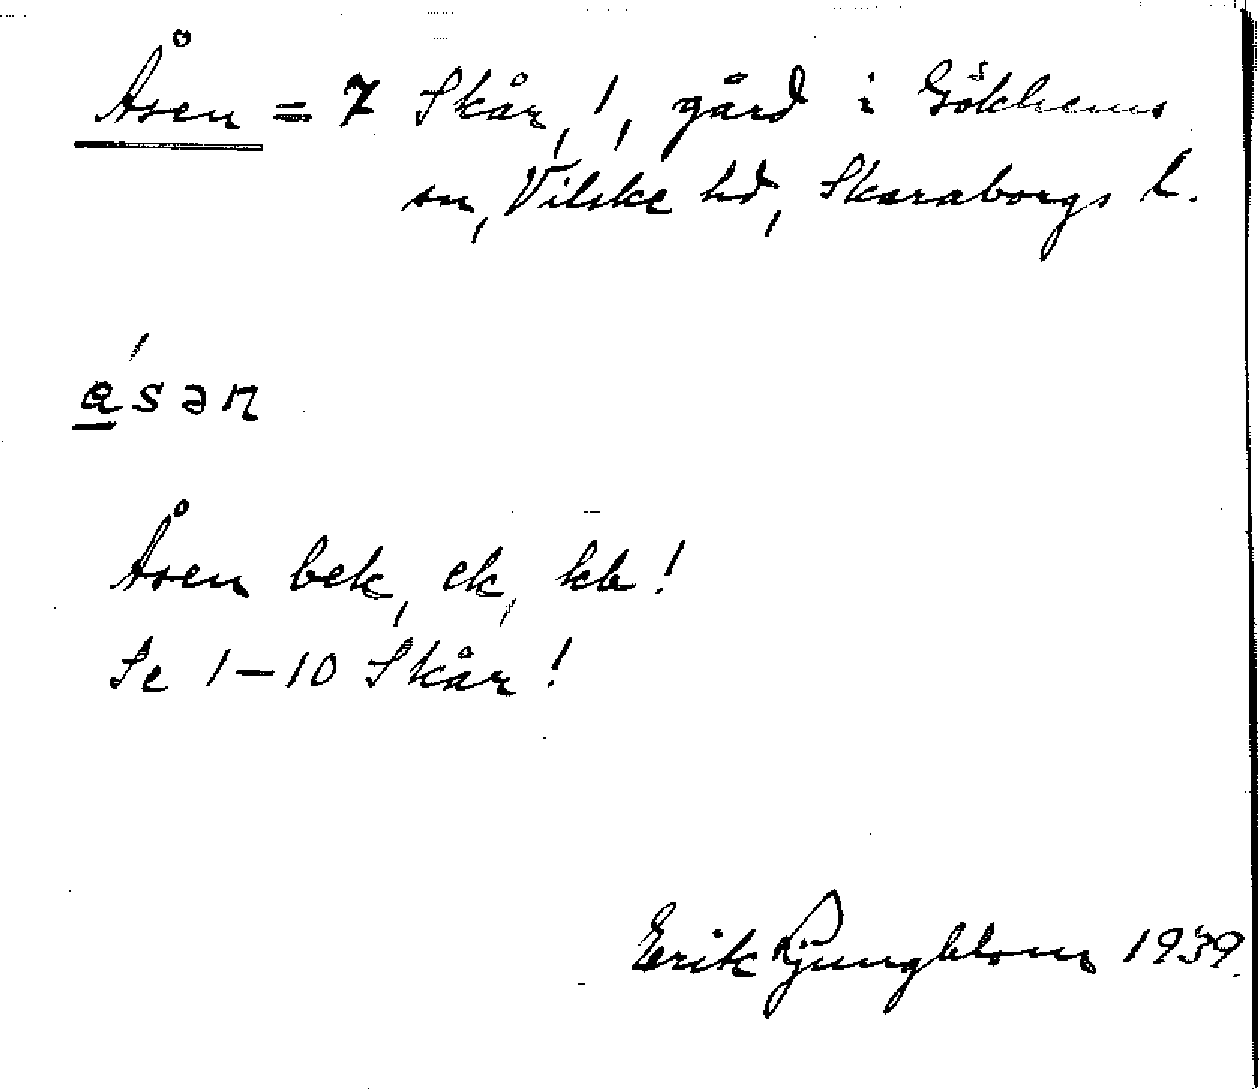 Åsen = 7 Skår, !, gård i Gökhems
sn, Vilske hd, Skaraborgs l.
ásən
Åsen bek, ek, kb!
Se 1-10 Skår!
Erik Ljungblom 1939.